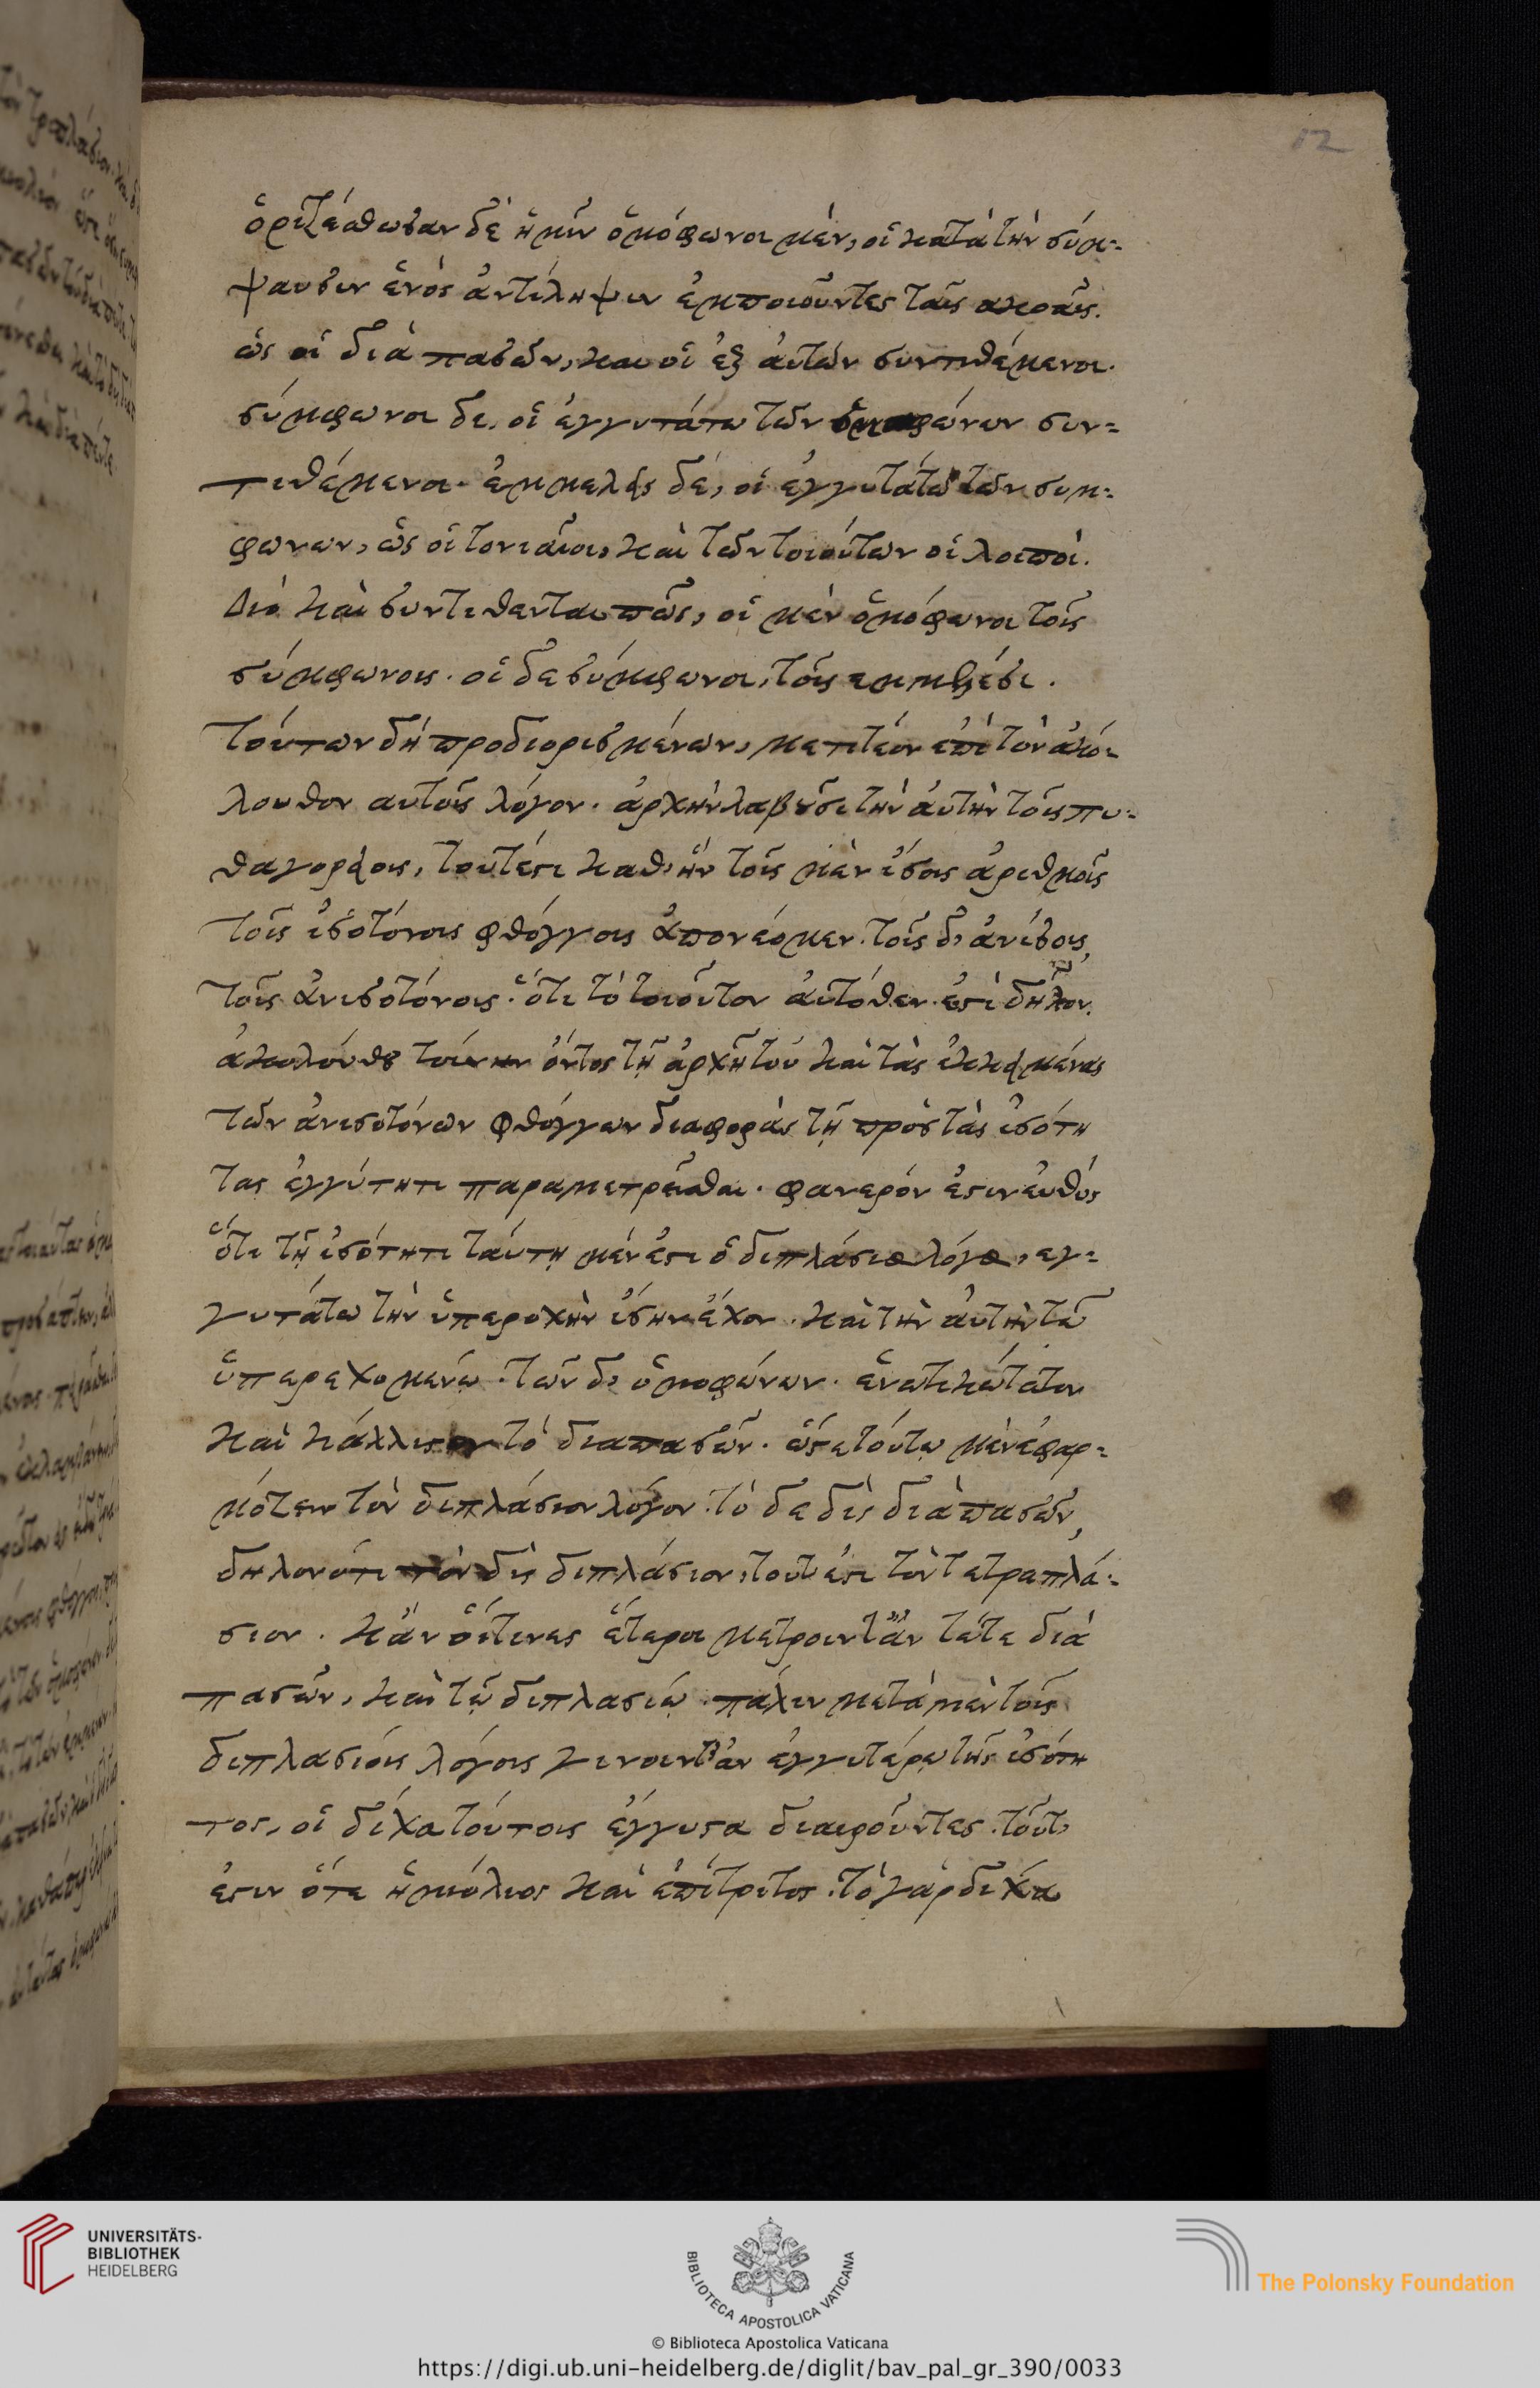 12
ὁριζέσθωσαν δὲ ἡμῖν ὁμόφωνοι μὲν, οἱ κατὰ τὴν σύμ-
ψαυσιν ἑνὸς ἀντίληψιν ἐμποιοῦντες ταῖς ἀκοαῖς.
ὡς οἱ διὰ πασῶν, και οἱ ἐξ αὐτῶν συντιθέμενοι.
σύμφωνοι δε, οἱ ἐγγυτάτω τῶν ὁμοφώνων συν-
τιθέμενοι. ἐμμελεῖς δὲ, οἱ ἐγγυτάτω τῶν συμ-
φωνων, ὡς οἱ τονιαῖοι, καὶ τῶν τοιούτων οἱ λοιποὶ.
Διὸ καὶ συντίθενται πῶς, οἱ μὲν ὁμόφωνοι τοῖς
σύμφωνοις. οἱ δε σύμφωνοι, τοῖς εμμελέσι.
Τούτων δὴ προδιορισμένων, μετιτέον ἐπὶ τὸν ἀκό-
λουθον αυτοῖς λόγον. ἀρχὴν λαβοῦσι τὴν ἀυτὴν τοῖς πυ-
θαγορείοις, τουτέστι καθ' ἣν τοῖς μὲν ἴσοις ἀριθμοῖς
τοῖς ἰσοτόνοις φθόγγοις ἀπονέομεν. τοῖς δ' ἀνίσοις,
τοῖς ἀνισοτόνοις. ὅτι τὸ τοιοῦτον αὐτόθεν ἐστὶ δῆλον.
ἀκολούθου τοίνυν ὄντος τῇ ἀρχῇ τοῦ καὶ τὰς ἐκκειμένας
τῶν ἀνισοτόνων φθόγγων διαφορὰς τῇ πρὸς τὰς ἰσότη
τας ἐγγύτητι παραμετρεῖσθαι. φανερόν ἐστιν εὐθύς
ὅτι τῇ ἰσότητι ταύτῃ μὲν ἐστι ὁ διπλάσιος λόγος, εγ-
γυτάτω τὴν ὑπεροχὴν ἴσην ἔχον. καὶ τὴν ἀυτὴν τῷ
ὑπερεχομένῳ. τῶν δὲ ὁμοφώνων. ἑνωτικώτατον
καὶ κάλλιστον τὸ διαπασῶν. ὥστε τούτῳ μὲν ἐφαρ-
μόζειν τὸν διπλάσιον λόγον. τὸ δε δὶς διὰ πασῶν,
δηλονότι τὸν δὶς διπλάσιον, τουτέστι τὸν τετραπλά-
σιον. κἂν οἵτινες ἕτεροι μετροιντἂν τῶτε διὰ
πασῶν, καὶ τῷ διπλασίῳ. πάλιν μετὰ μὲν τοὺς
διπλασίοις λόγοις γινοιντ' ἂν ἐγγυτέρω τῆς ἰσότη
τος, οἱ δίχα τούτοις ἔγγυστα διαιροῦντες. τοῦτ'
ἐστιν ὅτε ἡμιόλιος καὶ ἐπίτριτος. τὸ γὰρ δίχα
UNIVERSITÄTS-
BIBLIOTHEK
HEIDELBERG
BIBLIOTECA APOSTOLICA VATICANA
The Polonsky Foundation
© Biblioteca Apostolica Vaticana
https://digi.ub.uni-heidelberg.de/diglit/bav_pal_gr_390/0033